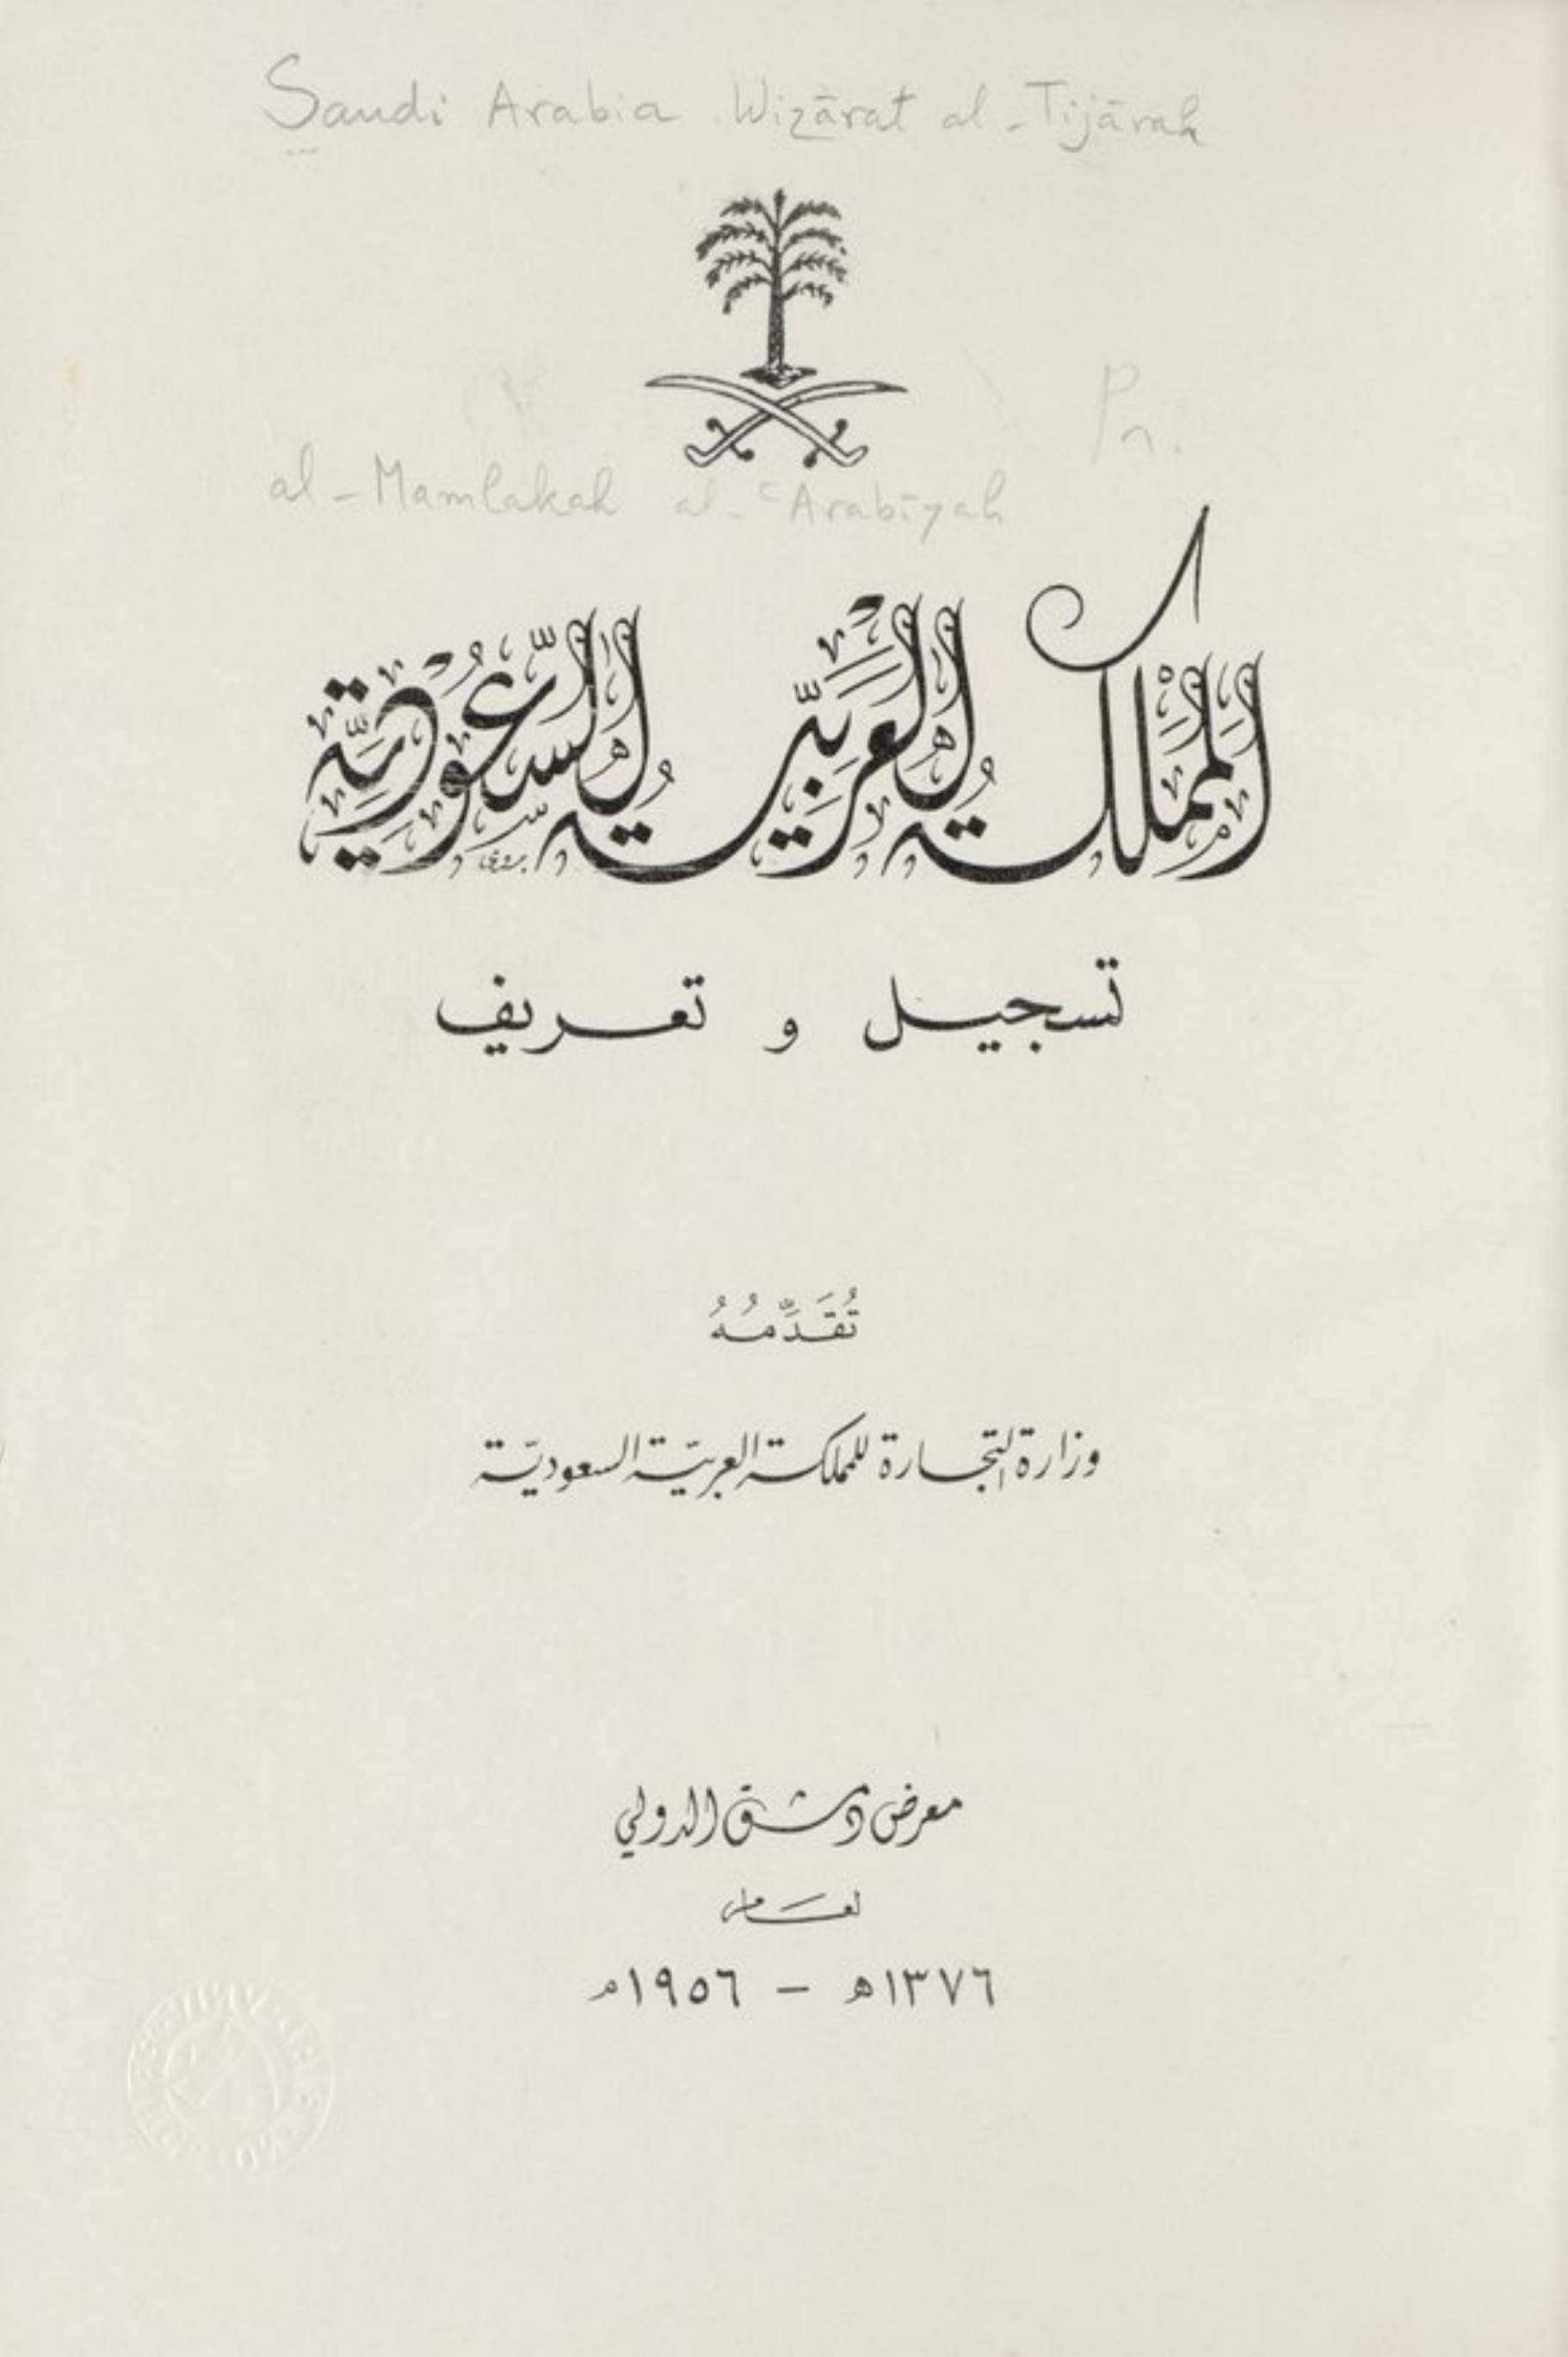 Saudi Arabia. Wizārat al-Tijārah
Pn.
al-Mamlakah al-ʿArabīyah
المملكة العربية السعودية
تسجيل و تعريف
تُقَدِّمُهُ
وزارة التجارة للمملكة العربيّة السعوديّة
معرض دمشق الدولي
لعام
١٣٧٦هـ – ١٩٥٦م